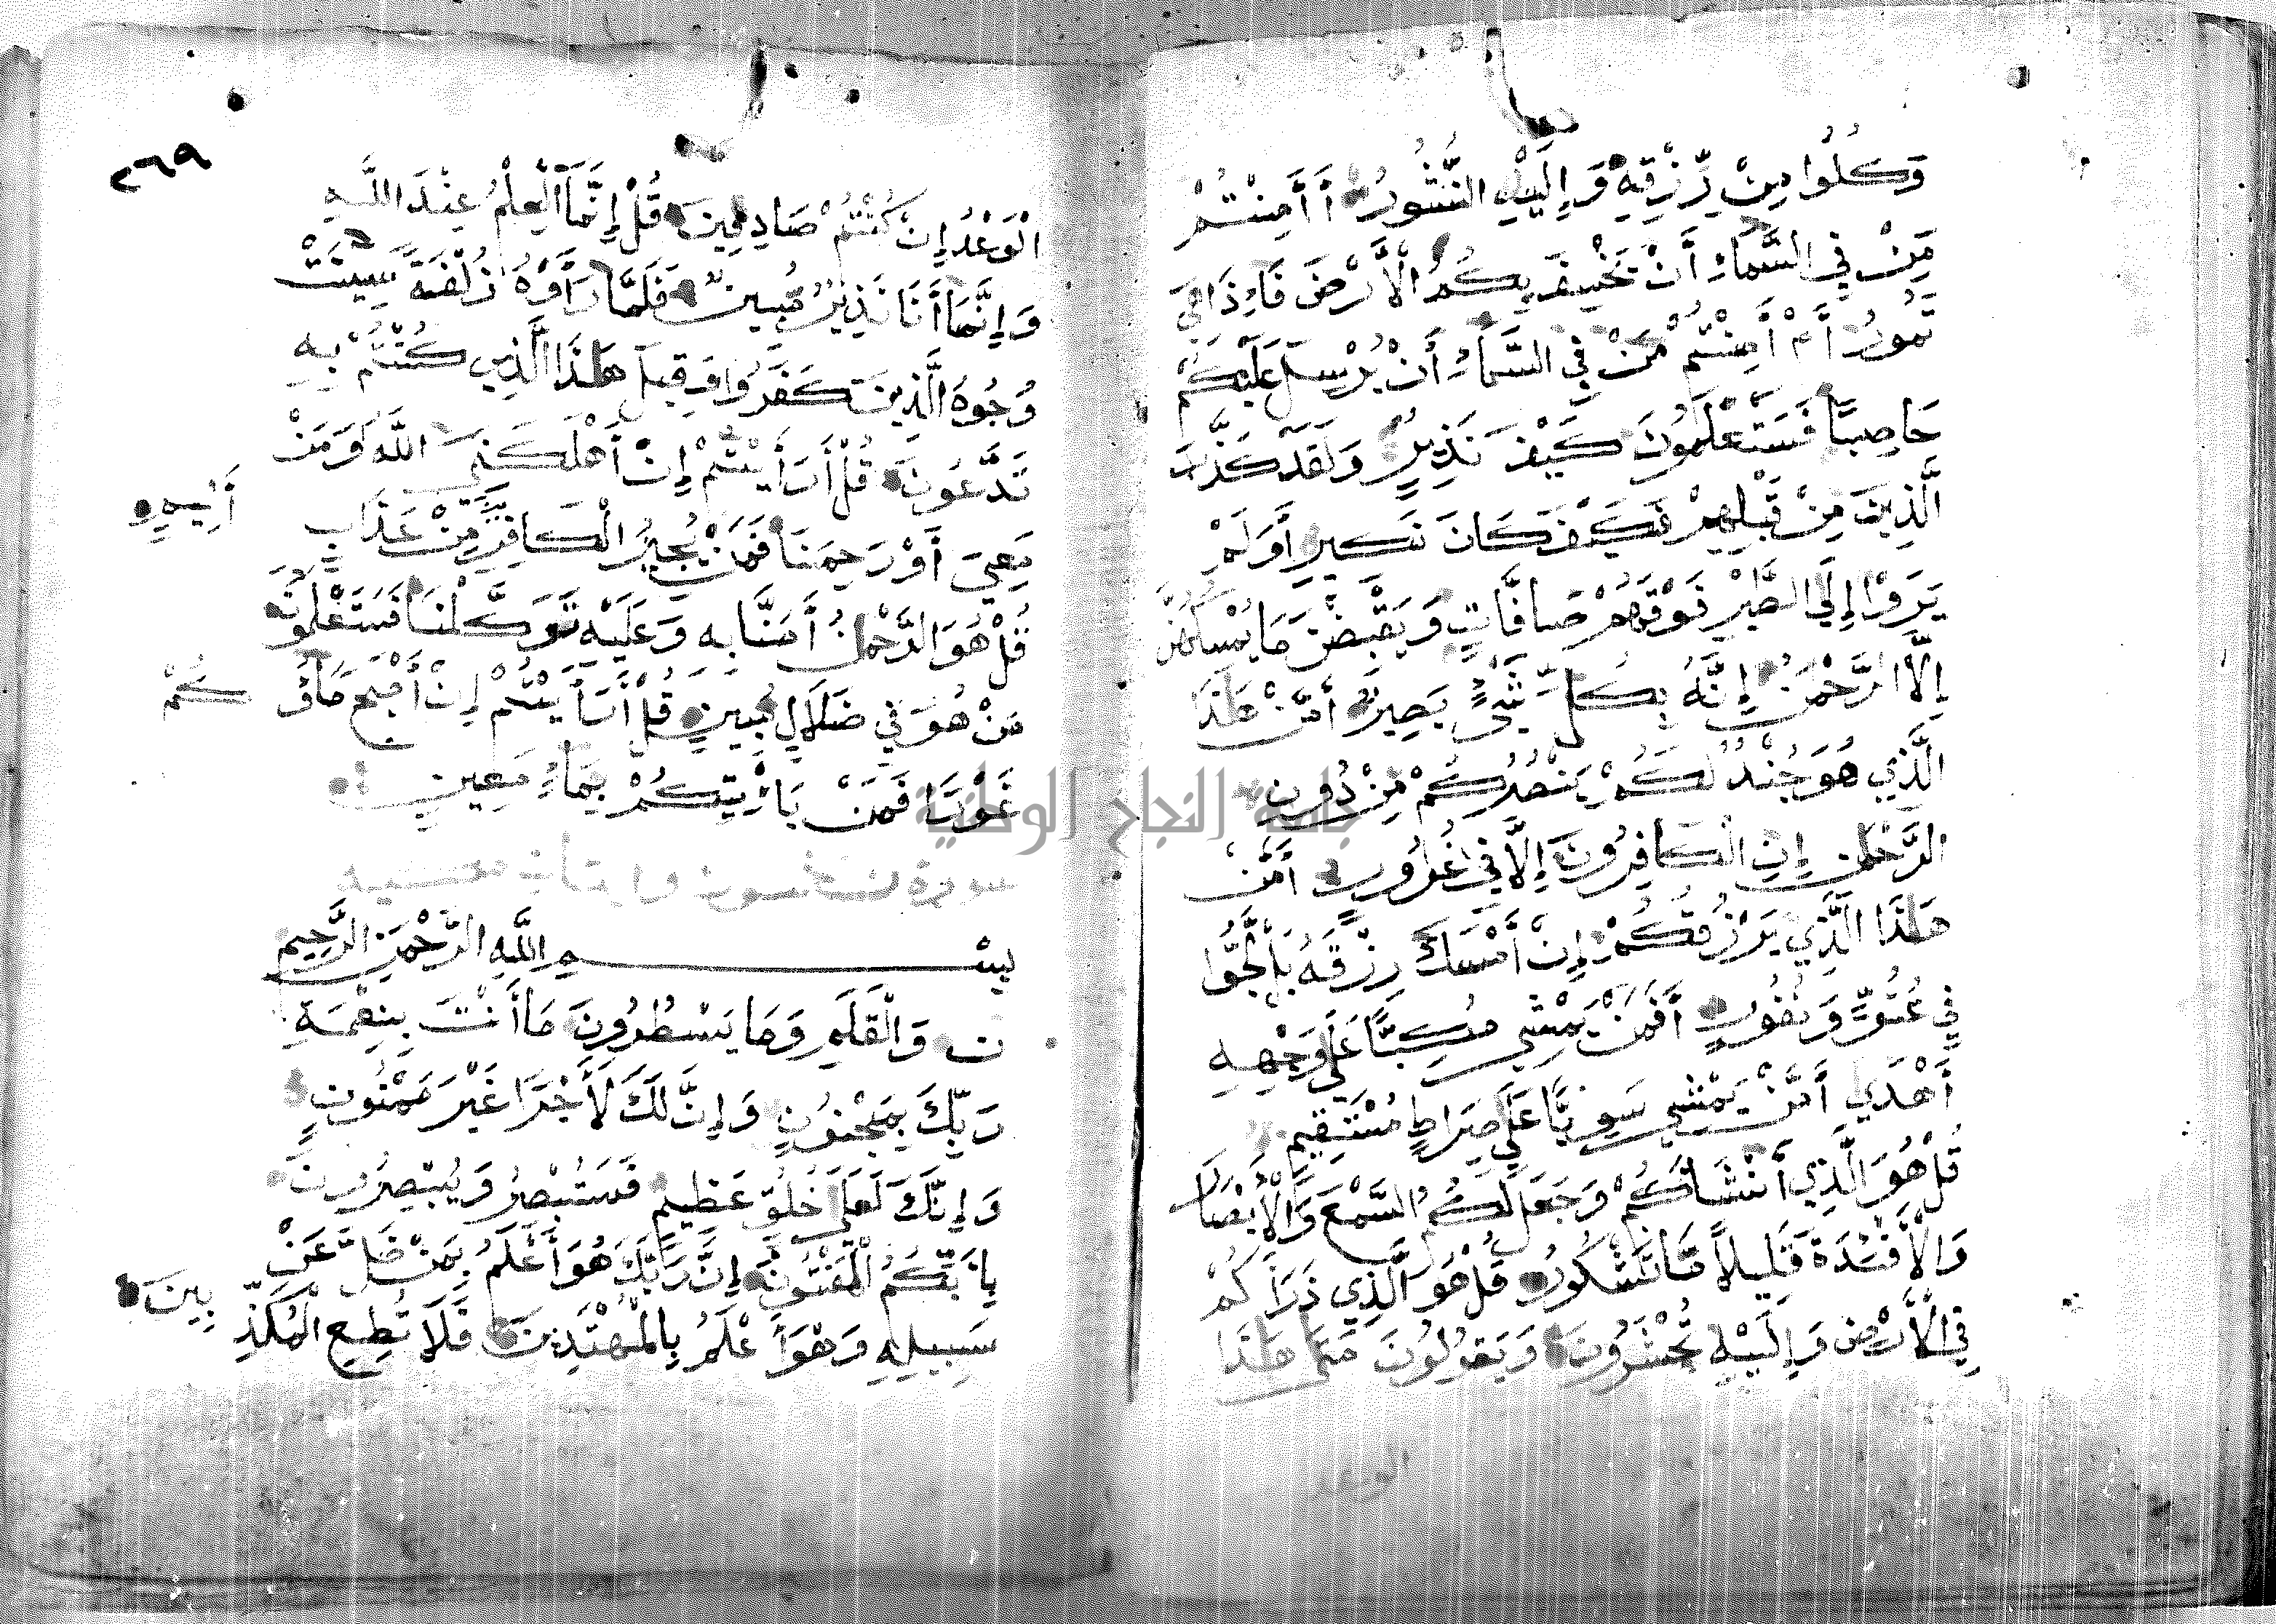 وَكُلُوا مِنْ رِّزْقِهِ وَإِلَيْهِ النُّشُورُ أَأَمِنْتُمْ
مَّنْ فِي السَّمَاءِ أَنْ يَخْسِفَ بِكُمُ الْأَرْضَ فَإِذَا هِيَ
تَمُورُ أَمْ أَمِنْتُمْ مَنْ فِي السَّمَاءِ أَنْ يُرْسِلَ عَلَيْكُمْ
حَاصِبًا فَسَتَعْلَمُونَ كَيْفَ نَذِيرِ وَلَقَدْ كَذَّبَ
الَّذِينَ مِنْ قَبْلِهِمْ فَكَيْفَ كَانَ نَكِيرِ أَوَلَمْ
يَرَوْا إِلَى الطَّيْرِ فَوْقَهُمْ صَافَّاتٍ وَيَقْبِضْنَ مَا يُمْسِكُهُنَّ
إِلَّا الرَّحْمَنُ إِنَّهُ بِكُلِّ شَيْءٍ بَصِيرٌ أَمَّنْ هَذَا
الَّذِي هُوَ جُنْدٌ لَكُمْ يَنْصُرُكُمْ مِنْ دُونِ
الرَّحْمَنِ إِنِ الْكَافِرُونَ إِلَّا فِي غُرُورٍ أَمَّنْ
هَذَا الَّذِي يَرْزُقُكُمْ إِنْ أَمْسَكَ رِزْقَهُ بَلْ لَجُّوا
فِي عُتُوٍّ وَنُفُورٍ أَفَمَنْ يَمْشِي مُكِبًّا عَلَى وَجْهِهِ
أَهْدَى أَمَّنْ يَمْشِي سَوِيًّا عَلَى صِرَاطٍ مُسْتَقِيمٍ
قُلْ هُوَ الَّذِي أَنْشَأَكُمْ وَجَعَلَ لَكُمُ السَّمْعَ وَالْأَبْصَارَ
وَالْأَفْئِدَةَ قَلِيلًا مَّا تَشْكُرُونَ قُلْ هُوَ الَّذِي ذَرَأَكُمْ
فِي الْأَرْضِ وَإِلَيْهِ تُحْشَرُونَ وَيَقُولُونَ مَتَى هَذَا
الوعد
٢٦٩
الْوَعْدُ إِنْ كُنْتُمْ صَادِقِينَ قُلْ إِنَّمَا الْعِلْمُ عِنْدَ اللَّهِ
وَإِنَّمَا أَنَا نَذِيرٌ مُّبِينٌ فَلَمَّا رَأَوْهُ زُلْفَةً سِيئَتْ
وُجُوهُ الَّذِينَ كَفَرُوا وَقِيلَ هَذَا الَّذِي كُنْتُمْ بِهِ
تَدَّعُونَ قُلْ أَرَأَيْتُمْ إِنْ أَهْلَكَنِيَ اللَّهُ وَمَنْ
مَعِيَ أَوْ رَحِمَنَا فَمَنْ يُجِيرُ الْكَافِرِينَ مِنْ عَذَابٍ أَلِيمٍ
قُلْ هُوَ الرَّحْمَنُ آمَنَّا بِهِ وَعَلَيْهِ تَوَكَّلْنَا فَسَتَعْلَمُونَ
مَنْ هُوَ فِي ضَلَالٍ مُبِينٍ قُلْ أَرَأَيْتُمْ إِنْ أَصْبَحَ مَاؤُكُمْ
غَوْرًا فَمَنْ يَأْتِيكُمْ بِمَاءٍ مَعِينٍ
بِسْمِ اللَّهِ الرَّحْمَنِ الرَّحِيمِ
ن وَالْقَلَمِ وَمَا يَسْطُرُونَ مَا أَنْتَ بِنِعْمَةِ
رَبِّكَ بِمَجْنُونٍ وَإِنَّ لَكَ لَأَجْرًا غَيْرَ مَمْنُونٍ
وَإِنَّكَ لَعَلَى خُلُقٍ عَظِيمٍ فَسَتُبْصِرُ وَيُبْصِرُونَ
بِأَيِّكُمُ الْمَفْتُونُ إِنَّ رَبَّكَ هُوَ أَعْلَمُ بِمَنْ ضَلَّ عَنْ
سَبِيلِهِ وَهْوَ أَعْلَمُ بِالْمُهْتَدِينَ فَلَا تُطِعِ الْمُكَذِّبِينَ
جامعة النجاح الوطنية